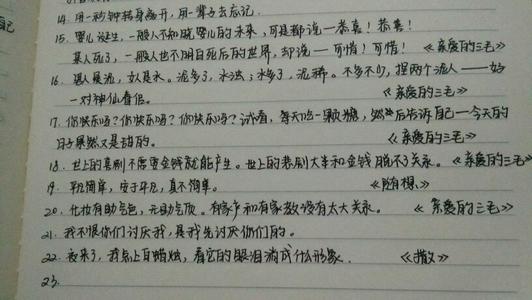 自己
14. 用一秒钟转身离开，用一辈子去忘记.
15. 婴儿诞生，一般人不知晓婴儿的未来，可是都说一恭喜！恭喜！
某人死了，一般人也不明白死后的世界，却说——可惜！可惜！《亲爱的三毛》
16. 男人是泥，女人是水。泥多了，水浊；水多了，泥稀。不多不少，捏两个泥人——好
一对神仙眷侣。 《亲爱的三毛》
17. 你快乐吗？你快乐吗？你快乐吗？试着，每天吃一颗糖，然后告诉自己一今天的
日子果然又是甜的。 《亲爱的三毛》
18. 世上的喜剧不需要金钱就能产生。世上的悲剧大半和金钱脱不了关系。《亲爱的三毛》
19. 平凡简单，安于平凡，真不简单。 《随想》
20. 化妆有助气色，无助气质。有家产和有家教没有太大关系。《亲爱的三毛》
21. 我不恨你们讨厌我，是我先讨厌你们的。
22. 夜来了，我点上白蜡烛，看它的眼泪淌成什么形象. 《撒》
23.